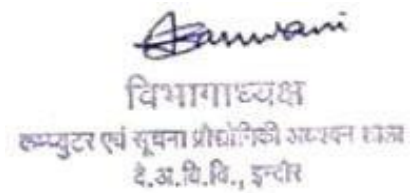 विभागाध्यक्ष
कम्प्युटर एवं सूचना प्रौद्योगिकी अध्ययन शाला
दे.अ.वि.वि., इन्दौर